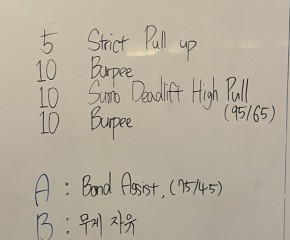 5 Strict Pull up
10 Burpee
10 Sumo Deadlift High Pull
(95/65)
10 Burpee
A : Band Assist, (75/45)
B : 무게 자유